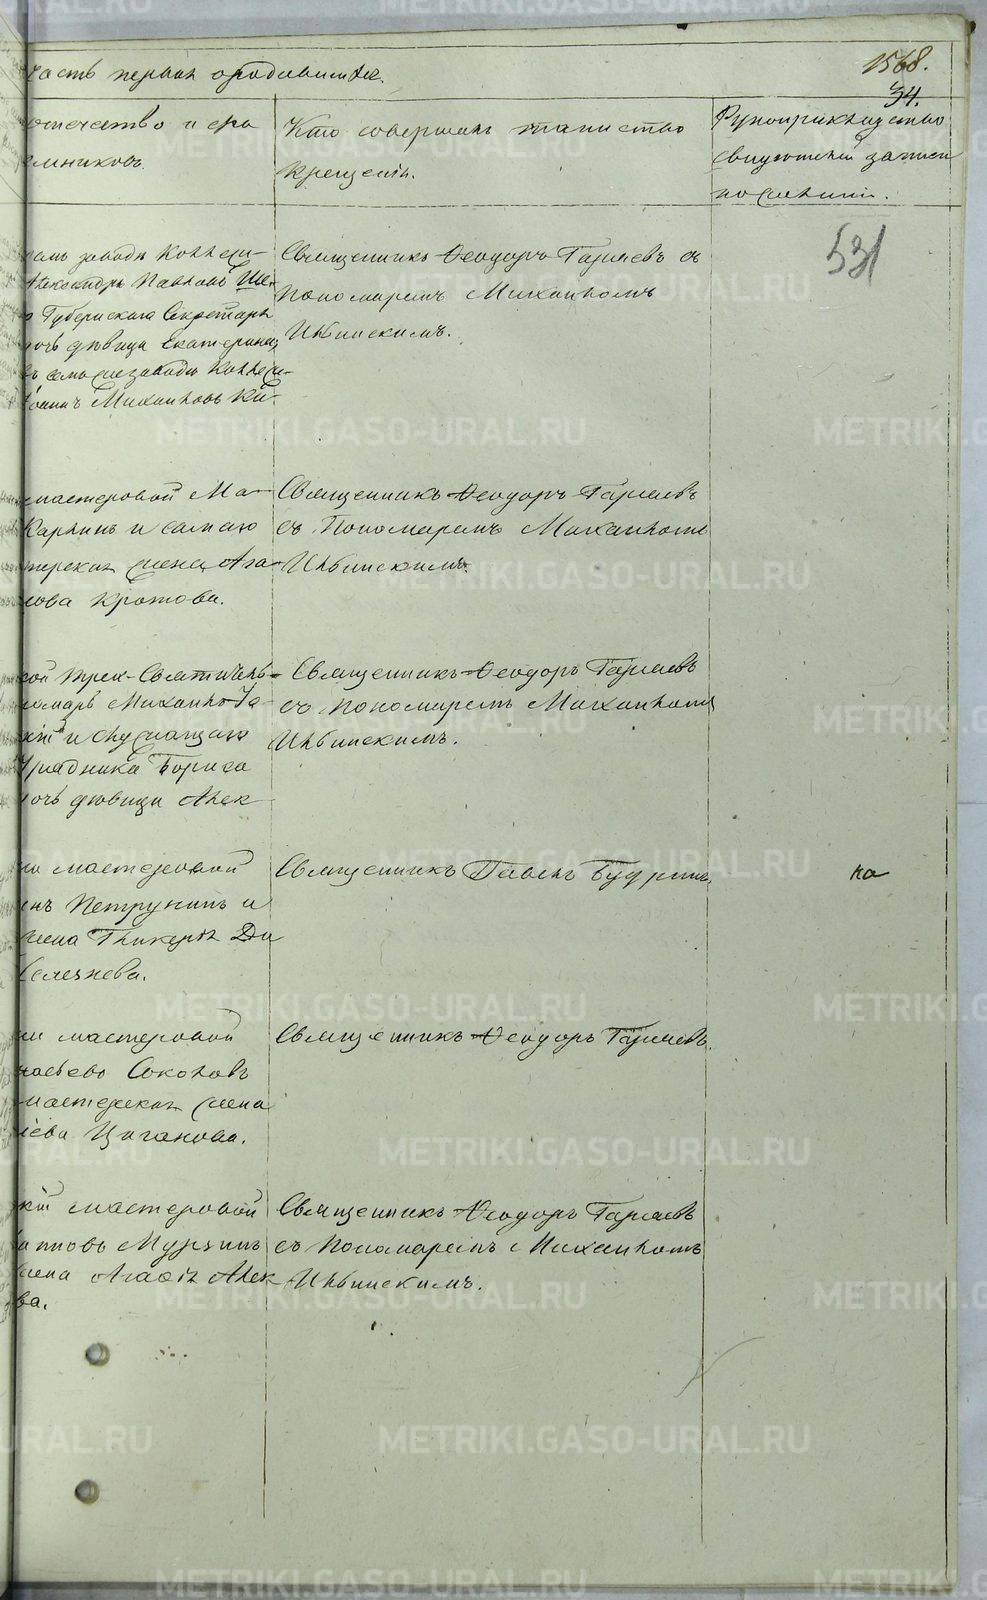 часть первая о родившихся.
1568.
34.
отчество и фа
емниковъ.
Кто совершалъ таинство
крещенія.
Рукоприкладство
свидѣтелей записи
по желанію.
531
завода Коллеж-
Александръ Павловъ
Губернскаго Секретаря
дочь дѣвица Екатерина
завода Коллеж-
Михаиловъ
Священникъ Ѳеодоръ Гаряевъ съ
Пономаремъ Михаиломъ
Ильинскимъ.
мастеровой Ма
Карпинъ и
мастерская жена Ага
Кротова.
Священникъ Ѳеодоръ Гаряевъ
съ Пономаремъ Михаиломъ
Ильинскимъ.
Трех-Святитель-
номарь Михаилъ
и служащаго
Урядника Бориса
дочь дѣвица Алек
Священникъ Ѳеодоръ Гаряевъ
съ Пономаремъ Михаиломъ
Ильинскимъ.
мастеровой
Петрунинъ и
жена Гликерія
Селезнева.
Священникъ Павелъ Будринъ.
мастеровой
Соколовъ
мастерская жена
Цыганова.
Священникъ Ѳеодоръ Гаряевъ.
мастеровой
Мурзинъ
жена Агаѳія Алек
ва.
Священникъ Ѳеодоръ Гаряевъ
съ Пономаремъ Михаиломъ
Ильинскимъ.
METRIKI.GASO-URAL.RU